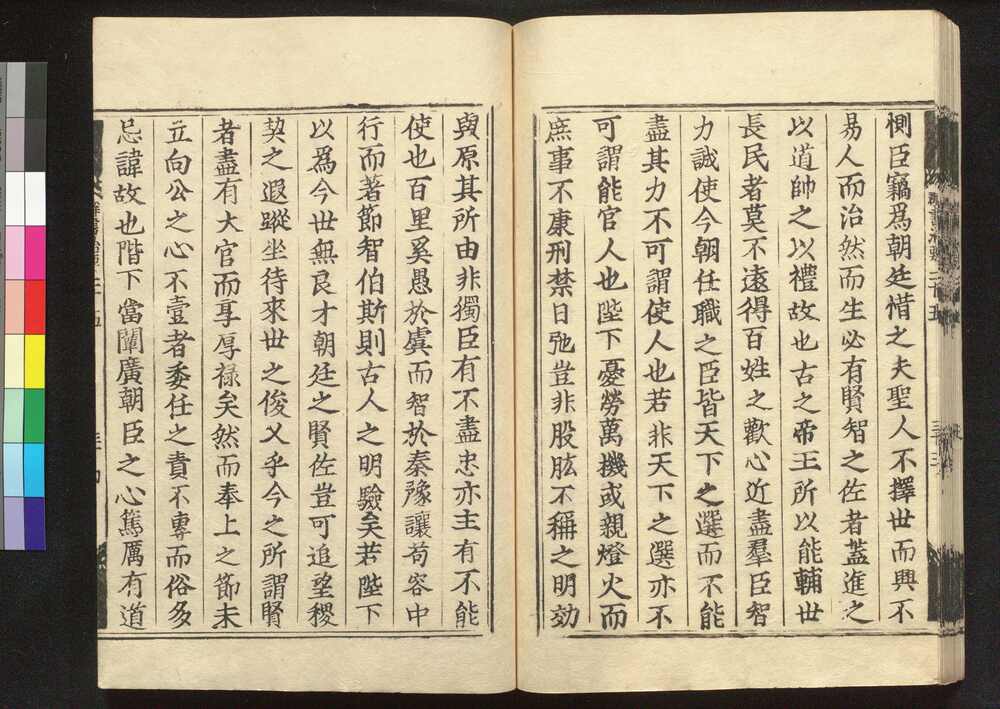 惻臣竊爲朝廷惜之夫聖人不擇世而興不
易人而治然而生必有賢智之佐者蓋進之
以道帥之以禮故也古之帝王所以能輔世
長民者莫不遠得百姓之歡心近盡羣臣智
力誠使今朝任職之臣皆天下之選而不能
盡其力不可謂使人也若非天下之選亦不
可謂能官人也陛下憂勞萬機或親燈火而
庶事不康刑禁日弛豈非股肱不稱之明効
與原其所由非獨臣有不盡忠亦主有不能
使也百里奚愚於虞而智於秦豫讓苟容中
行而著節智伯斯則古人之明驗矣若陛下
以爲今世無良才朝廷之賢佐豈可追望稷
契之遐蹤坐待來世之俊乂乎今之所謂賢
者盡有大官而享厚禄矣然而奉上之節未
立向公之心不壹者委任之責不專而俗多
忌諱故也階下當闡廣朝臣之心篤厲有道